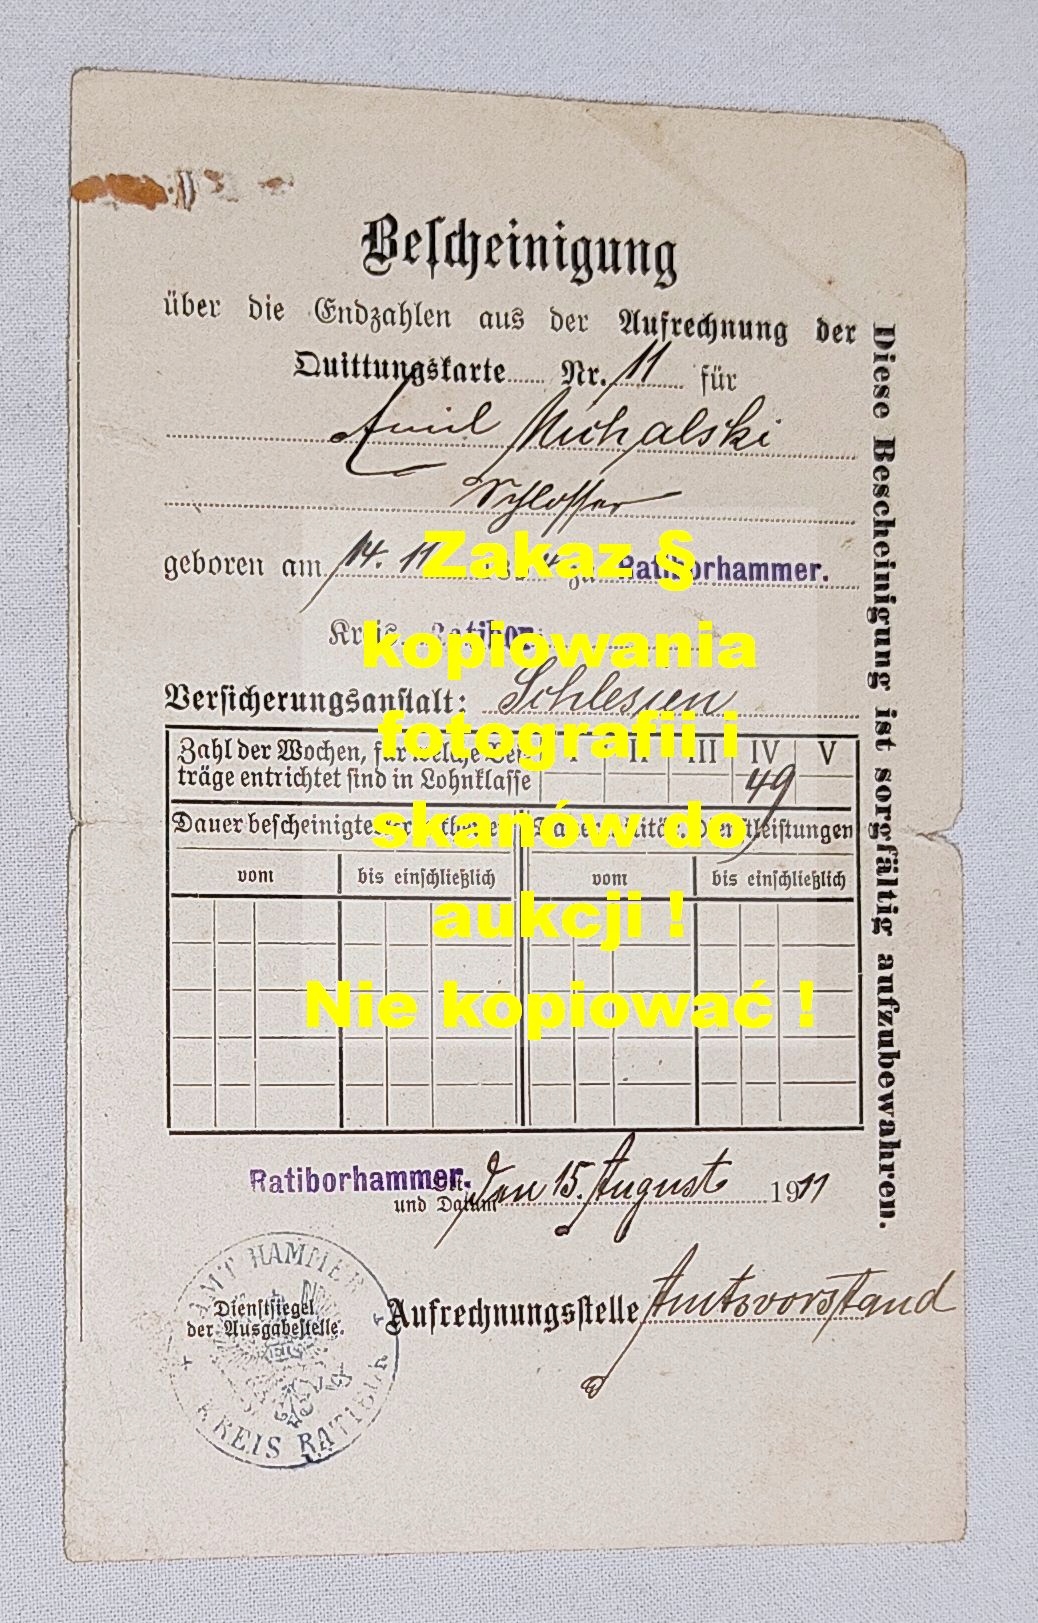 Bescheinigung
über die Endzahlen aus der Aufrechnung der
Quittungskarte Nr. 11 für
Emil Michalski
Schlosser
geboren am 14. 11 zu Ratiborhammer.
Kreis Ratibor
Versicherungsanstalt: Schlesien
Zahl der Wochen, für welche Bei- I II III IV V
träge entrichtet sind in Lohnklasse 49
Dauer bescheinigter Dienstleistungen
vom bis einschließlich vom bis einschließlich
Ratiborhammer.
und Datum den 15. August 1911
Aufrechnungsstelle Amtsvorstand
Dienstsiegel
der Ausgabestelle.
AMT HAMMER
KREIS RATIBOR
Diese Bescheinigung ist sorgfältig aufzubewahren.
Zakaz §
kopiowania
fotografii i
skanów do
aukcji !
Nie kopiować !